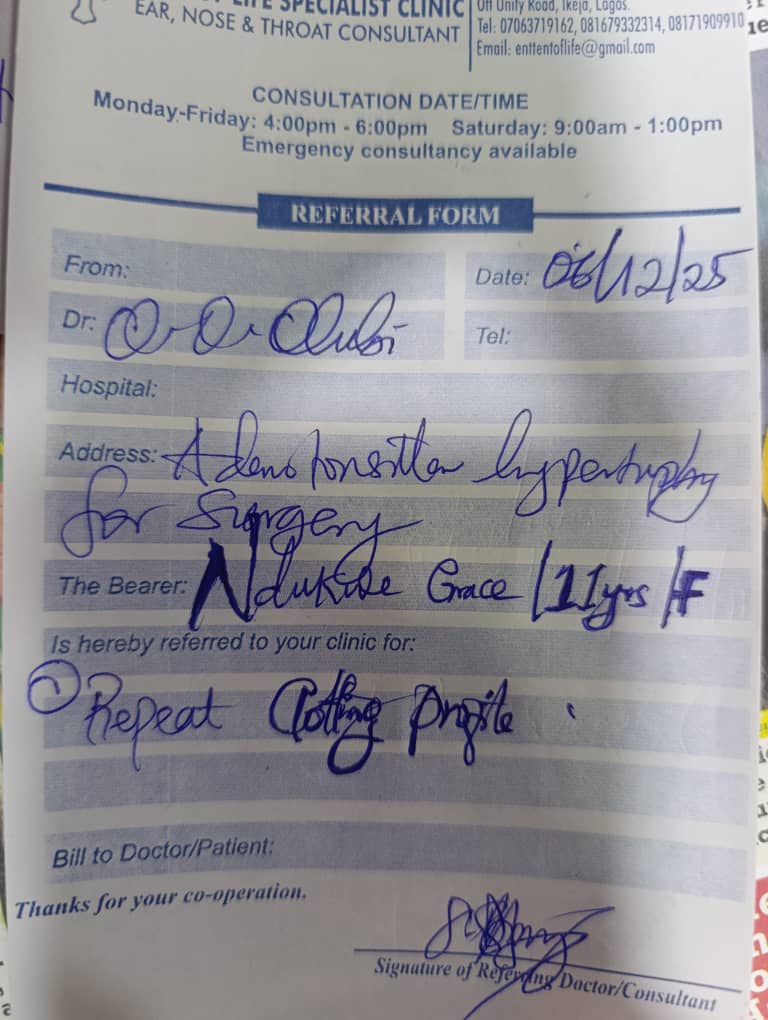 LIFE SPECIALIST CLINIC
EAR, NOSE & THROAT CONSULTANT
Off Unity Road, Ikeja, Lagos.
Tel: 07063719162, 081679332314, 08171909910
Email: enttentoflife@gmail.com
CONSULTATION DATE/TIME
Monday-Friday: 4:00pm - 6:00pm Saturday: 9:00am - 1:00pm
Emergency consultancy available
REFERRAL FORM
From:
Date: 06/12/25
Dr: O. O. Olubi
Tel:
Hospital:
Address: Adenotonsillar hypertrophy
for Surgery
The Bearer: Grace / 11yrs / F
Is hereby referred to your clinic for:
① Repeat Clotting profile
Bill to Doctor/Patient:
Thanks for your co-operation.
Signature of Referring Doctor/Consultant